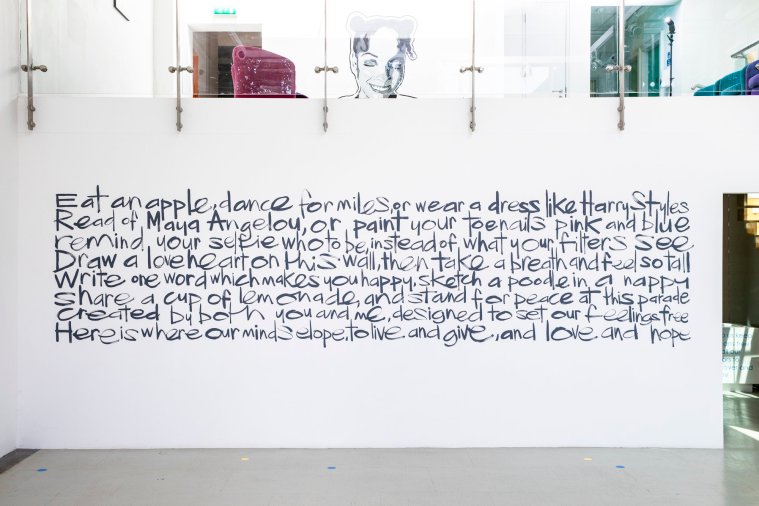 Eat an apple, dance for miles, or wear a dress like Harry Styles
Read of Maya Angelou, or paint your toenails pink and blue
remind your selfie who to be, instead of what your filters see
Draw a love heart on this wall, then take a breath and feel so tall
Write one word which makes you happy, sketch a poodle in a nappy
share a cup of lemonade, and stand for peace at this parade
created by both you and me, designed to set our feelings free
Here is where our minds elope, to live and give, and love and hope